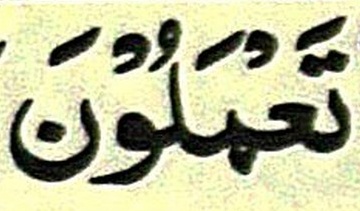 تَعْمَلُوْنَ